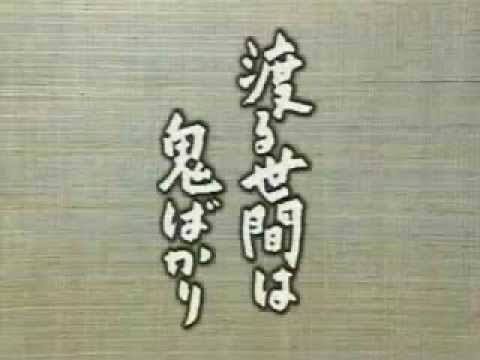 渡る世間は
鬼ばかり